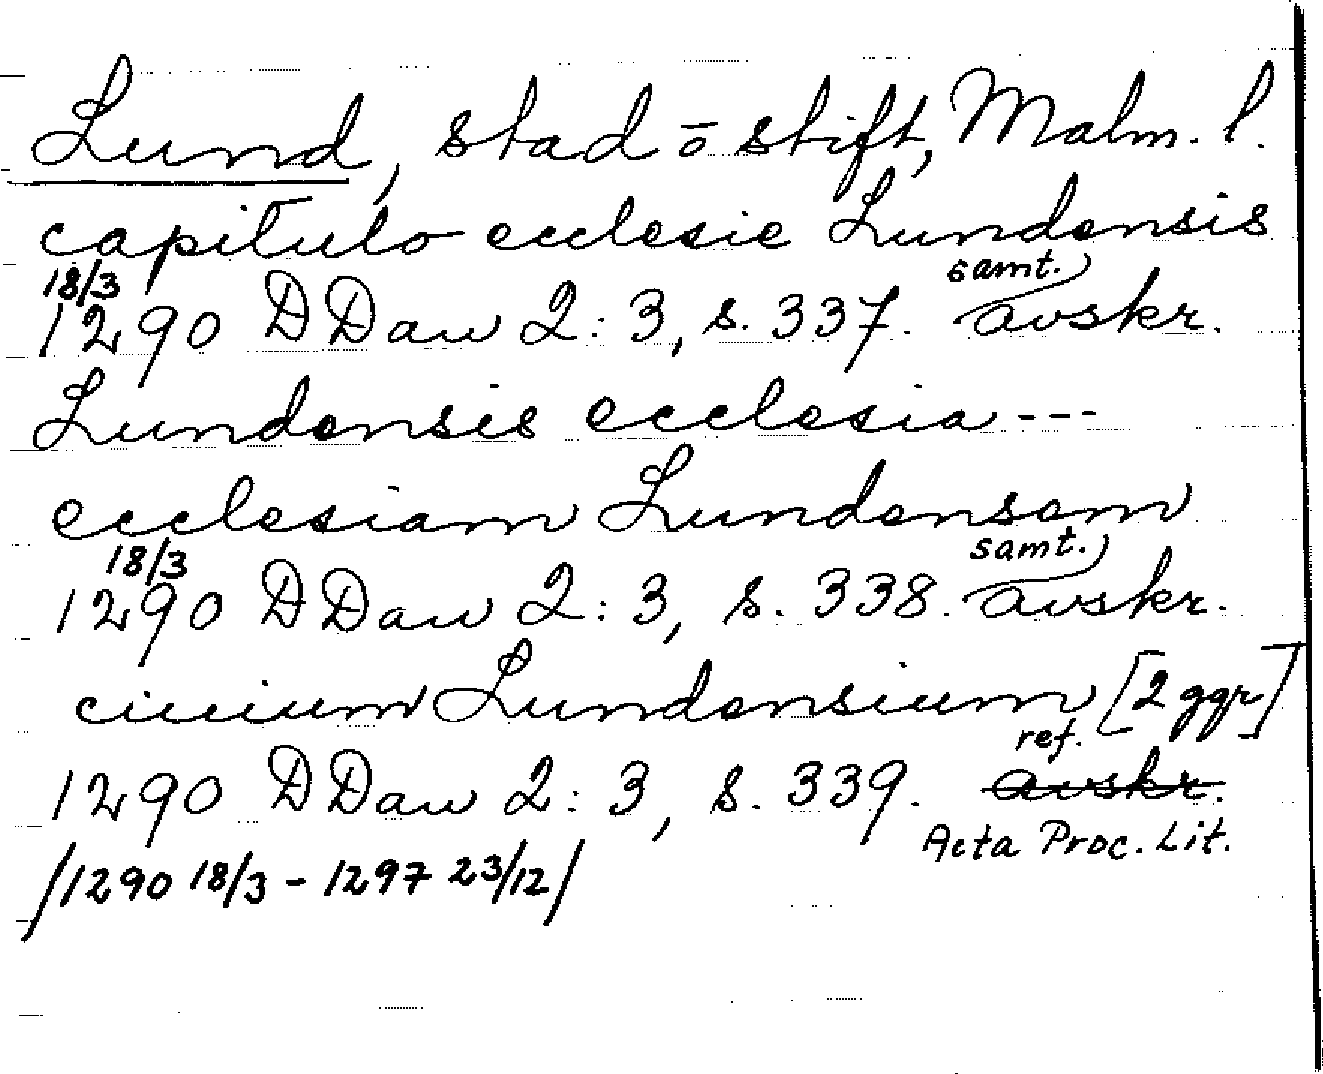 Lund, stad o stift, Malm. l.
capitulo ecclesie Lundensis
18/3 samt.
1290 DDan 2:3, s. 337. avskr.
Lundensis ecclesia ---
ecclesiam Lundensem
18/3 samt.
1290 DDan 2:3, s. 338. avskr.
ciuium Lundensium [2 ggr]
ref.
1290 DDan 2:3, s. 339. avskr.
Acta Proc. Lit.
/1290 18/3 - 1297 23/12/